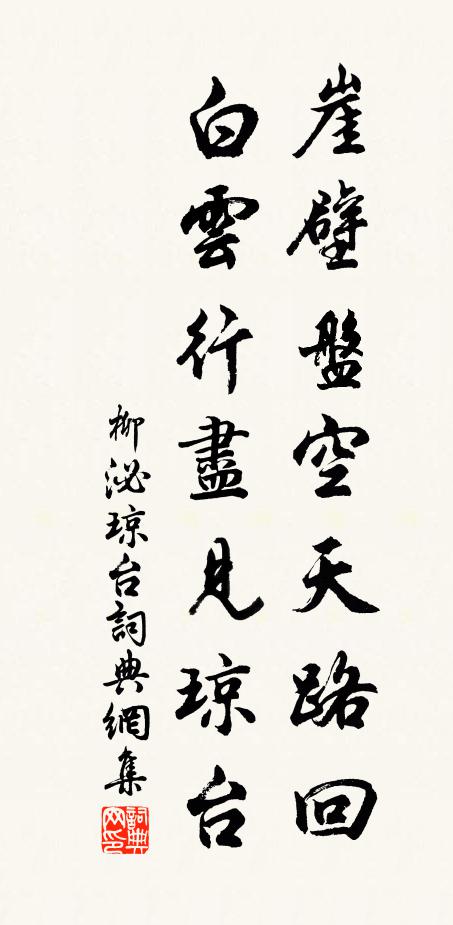 崖壁盤空天路回
白雲行盡見琼台
柳泌琼台詞典網集
詞典網印